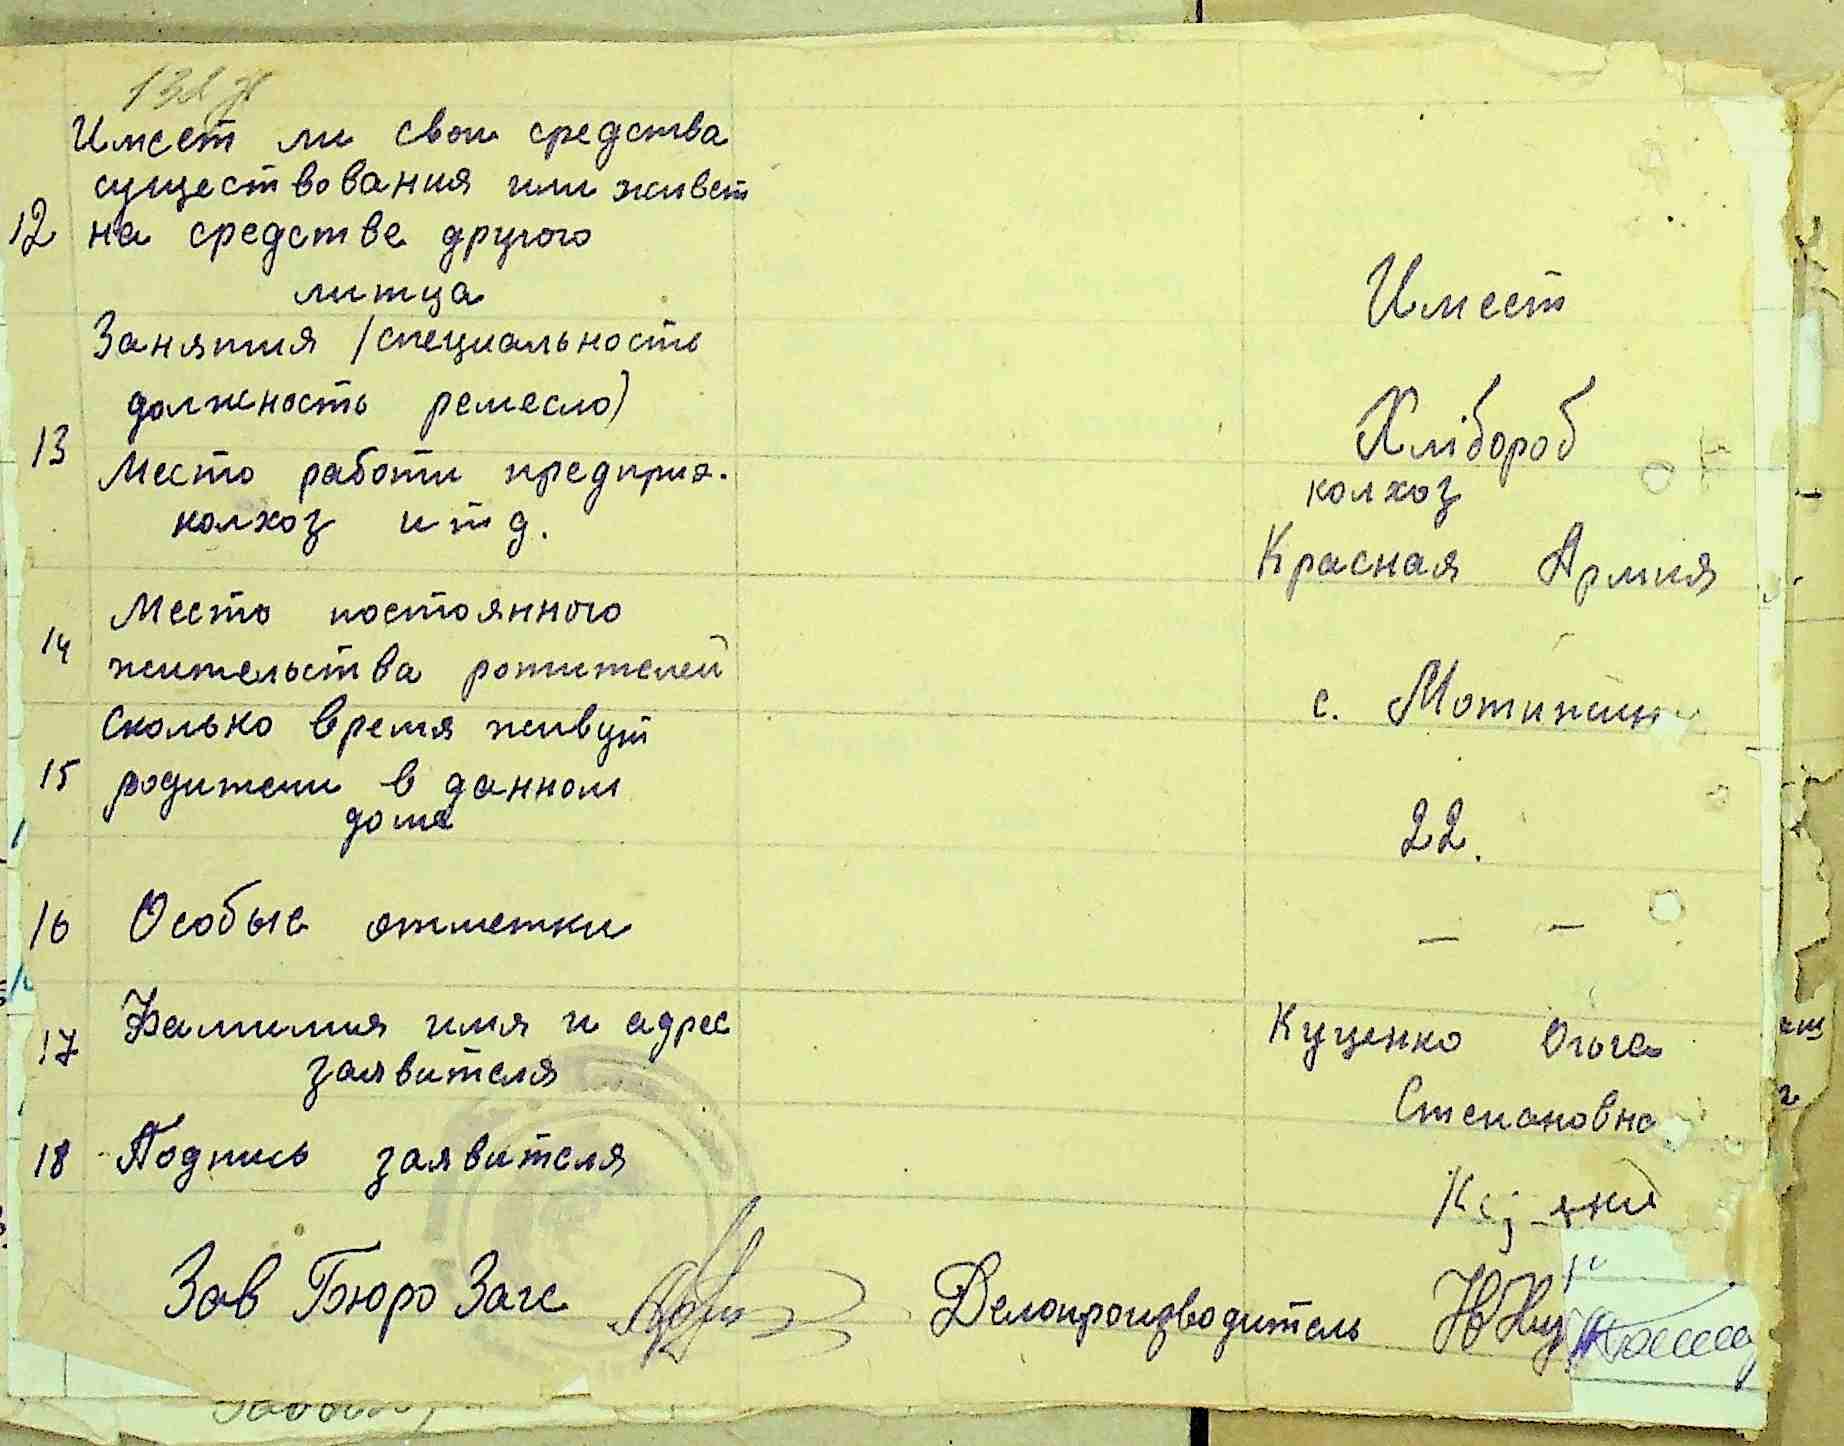 Имеет ли свои средства
существования или живет
12 на средстве другого
литца
Имеет
Занятия /специальность
должность ремесло)
Хлібороб
13 Место работи предприя.
колхоз и т д.
колхоз
Красная Армия
Место постоянного
14 жительства ротителей
с. Мотижин
Сколько время живут
15 родители в данном
доме
22.
16 Особые отметки
— —
17 Фамилия имя и адрес
заявителя
Куценко Ольга
Степановна
18 Подпись заявителя
Зав Бюро Загс
Делопроизводитель